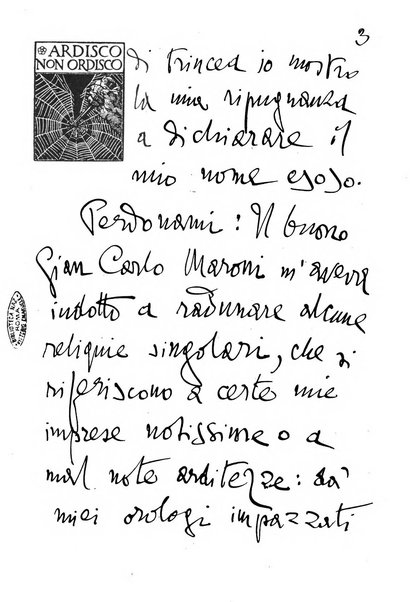 3
ARDISCO
NON ORDISCO
di trincea io mostro
la mia ripugnanza
a dichiarare il
mio nome esoso.
Perdonami: Il buono
Gian Carlo Maroni m'aveva
indotto a radunare alcune
reliquie singolari, che si
riferiscono a certe mie
imprese notissime o a
mal note arditezze: da'
miei orologi impazzati
BIBLIOTECA
ROMA